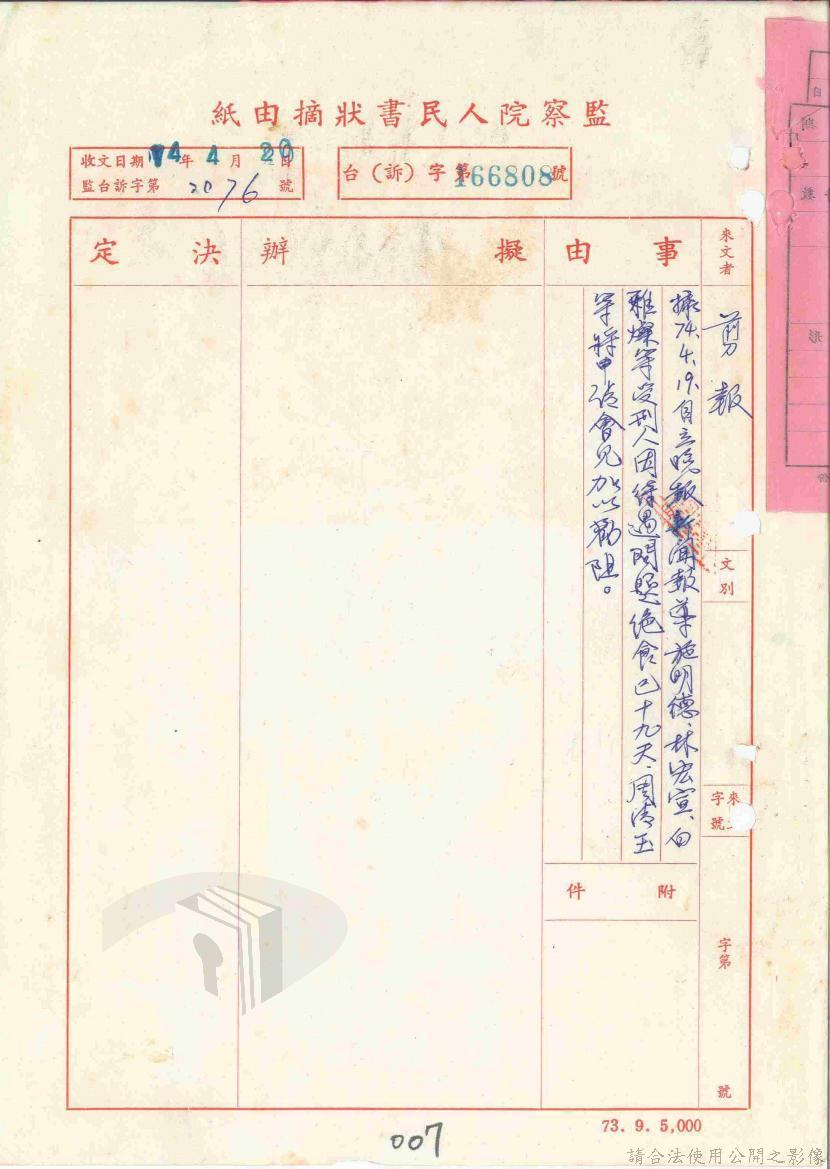 監察院人民書狀摘由紙
收文日期 74年4月20日
監台訴字第2076號
台(訴)字第166808號
來文者
剪報
文別
來文字號
字第 號
事由
據74.4.19.自立晚報新聞報導施明德、林宏宣、白
雅燦等受刑人因待遇問題絕食已十九天、周清玉
等將申請會見加以勸阻。
附件
擬辦
決定
73. 9. 5,000
007
請合法使用公開之影像